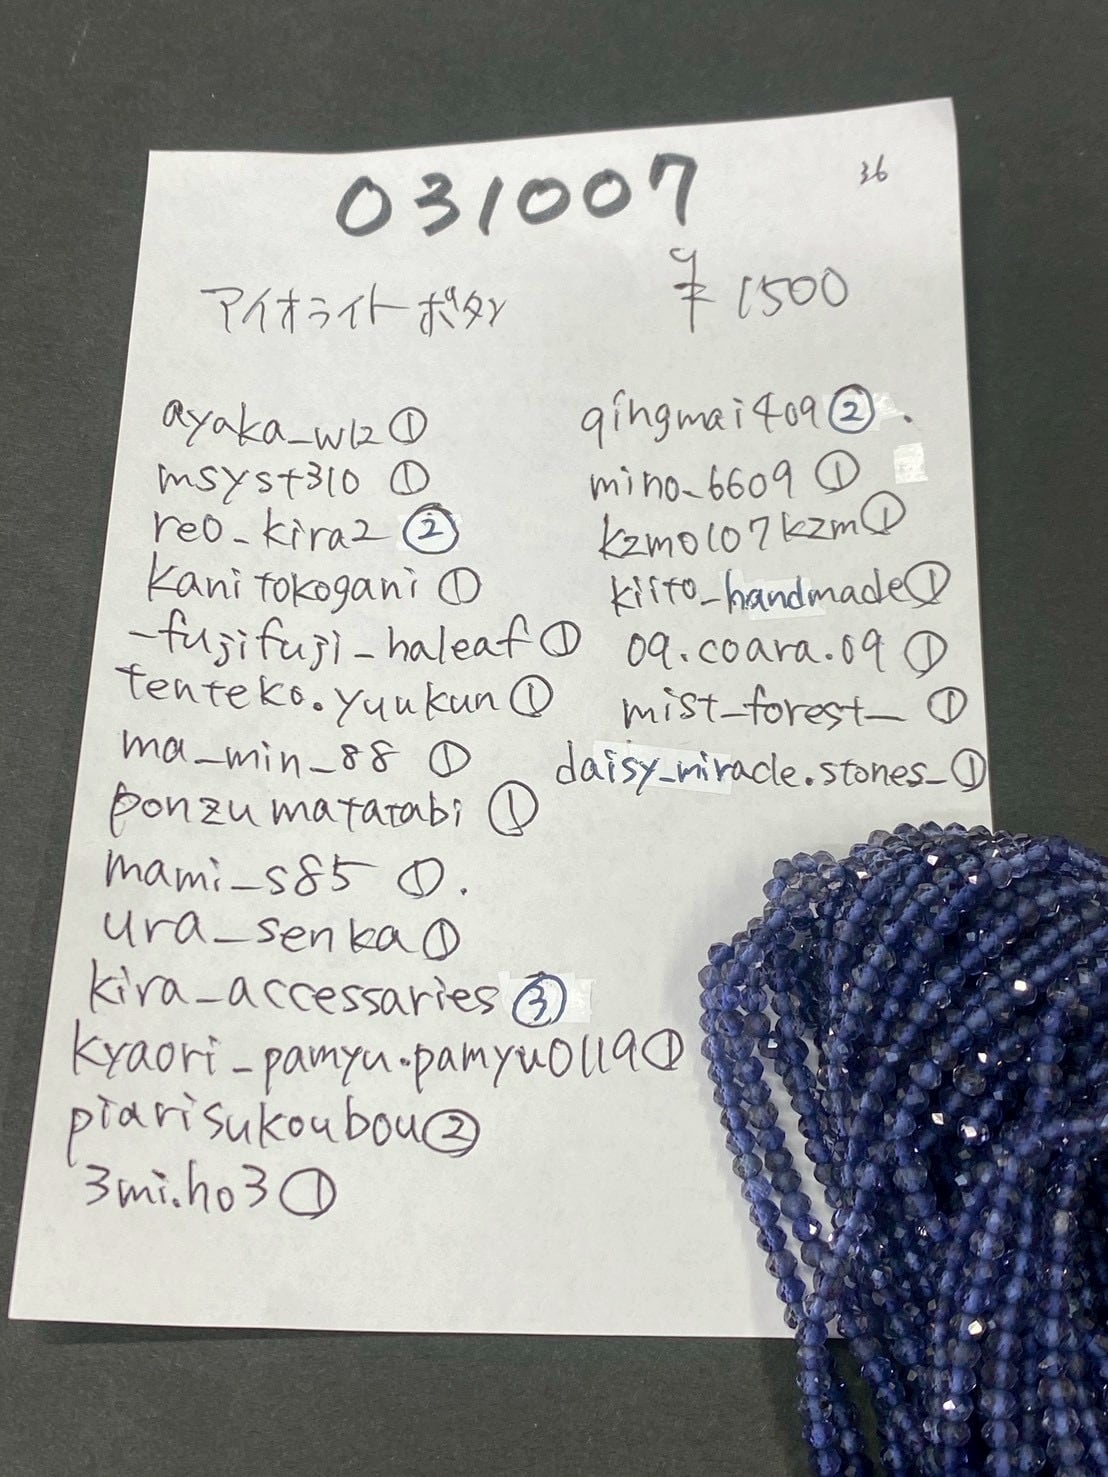 031007
36
アイオライトボタン
¥1500
ayaka_w12①
msyst310 ①
reo_kira2 ②
kanitokogani ①
_fujifuji_haleaf①
tenteko.yuukun①
ma_min_88 ①
ponzumatatabi ①
mami_s85 ①.
ura_senka①
kira_accessaries③
kyaori_pamyu.pamyu0119①
piarisukoubou②
3mi.ho3①
qingmai409②.
mino_6609 ①
kzm0107kzm①
kiito_handmade①
09.coara.09 ①
mist_forest_ ①
daisy_miracle.stones_①